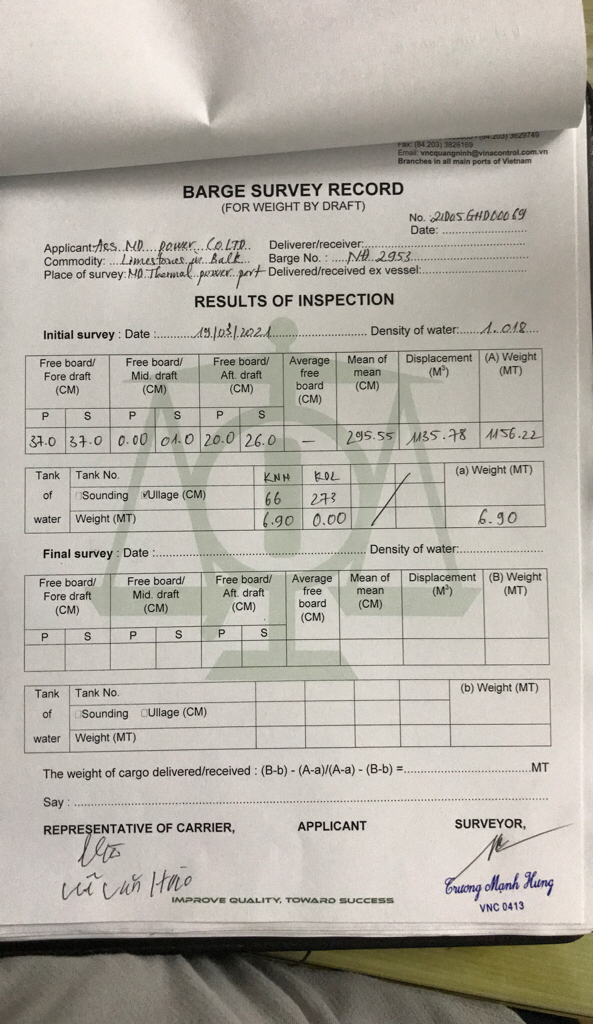 (84.203) 3829749
Fax: (84.203) 3826169
Email: vncquangninh@vinacontrol.com.vn
Branches in all main ports of Vietnam
BARGE SURVEY RECORD
(FOR WEIGHT BY DRAFT)
No. 21D05GHD00069
Date:
Applicant: AES MD power Co.LTD Deliverer/receiver:
Commodity: Limestones in Bulk Barge No.: NĐ 2953
Place of survey: MD Thermal power port Delivered/received ex vessel:
RESULTS OF INSPECTION
Initial survey : Date : 19/03/2021 Density of water: 1.018
Free board/ Fore draft (CM) Free board/ Mid. draft (CM) Free board/ Aft. draft (CM) Average free board (CM) Mean of mean (CM) Displacement (M³) (A) Weight (MT)
P S P S P S
37.0 37.0 0.00 01.0 20.0 26.0 – 295.55 1135.78 1156.22
Tank of water Tank No. KNH (a) Weight (MT)
Sounding Ullage (CM) 66 273
Weight (MT) 6.90 0.00 6.90
Final survey : Date : Density of water:
Free board/ Fore draft (CM) Free board/ Mid. draft (CM) Free board/ Aft. draft (CM) Average free board (CM) Mean of mean (CM) Displacement (M³) (B) Weight (MT)
P S P S P S
Tank of water Tank No. (b) Weight (MT)
Sounding Ullage (CM)
Weight (MT)
The weight of cargo delivered/received : (B-b) - (A-a)/(A-a) - (B-b) = MT
Say :
REPRESENTATIVE OF CARRIER, APPLICANT SURVEYOR,
Vũ Văn Hào
Trương Mạnh Hưng
VNC 0413
IMPROVE QUALITY, TOWARD SUCCESS